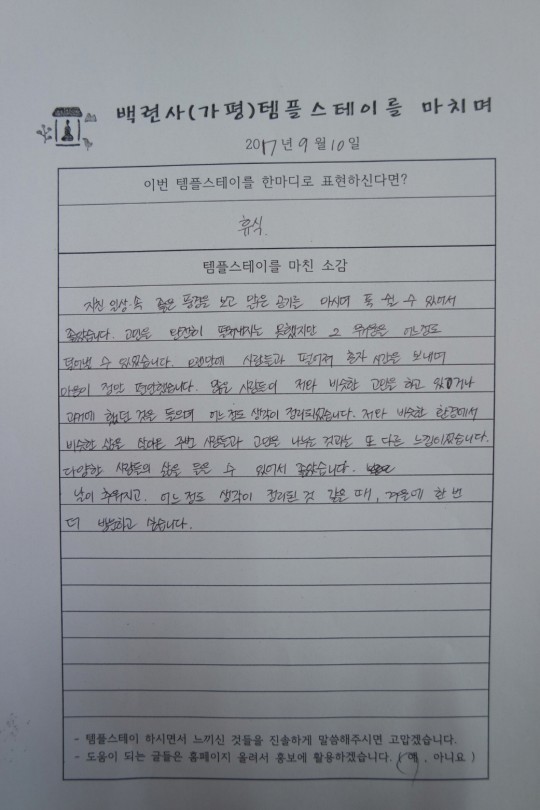 백련사(가평)템플스테이를 마치며
2017년 9월 10일
이번 템플스테이를 한마디로 표현하신다면?
휴식.
템플스테이를 마친 소감
지친 일상 속 좋은 풍경을 보고 맑은 공기를 마시며 푹 쉴 수 있어서
좋았습니다. 고민을 완전히 떨쳐내지는 못했지만 그 무거움을 어느정도
덜어낼 수 있었습니다. 사람들과 떨어져 혼자 시간을 보내며
마음이 정말 편안했습니다. 많은 사람들이 저와 비슷한 고민을 하고 있거나
과거에 했던 것을 들으며 어느정도 생각이 정리되었습니다. 저와 비슷한 환경에서
비슷한 삶을 살아온 주변 사람들과 고민을 나누는 것과는 또 다른 느낌이었습니다.
다양한 사람들의 삶을 들을 수 있어서 좋았습니다.
날이 추워지고. 어느 정도 생각이 정리된 것 같을 때, 겨울에 한 번
더 방문하고 싶습니다.
- 템플스테이 하시면서 느끼신 것들을 진솔하게 말씀해주시면 고맙겠습니다.
- 도움이 되는 글들은 홈페이지 올려서 홍보에 활용하겠습니다. ( 예 , 아니요 )